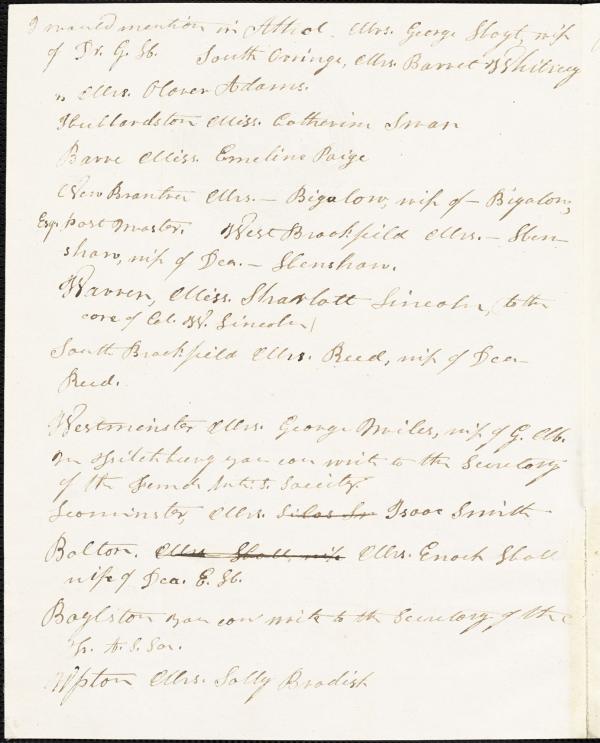 I would mention in Athol. Mrs. George Hoyt, wife
of Dr. G. H. South Orringe, Mrs. Barret Whitney
" Mrs. Olover Adams.
Hubbardston Miss. Catherine Swan
Barre Miss. Emeline Paige
New Brantree Mrs. — Bigalow, wife of — Bigalow,
Esq. Post Master. West Brookfield Mrs. — Hen-
shaw, wife of Dea. — Henshaw.
Warren, Miss. Sharlott Lincoln, (to the
care of Col. W. Lincoln)
South Brookfield Mrs. Reed, wife of Dea —
Reed.
Westminster Mrs. George Miles, wife of G. M.
In Fitchburg you can write to the Secretary
of the Female Anti S. Society.
Leominster, Mrs. Silas Isaac Smith
Bolton. Mrs. Hall, wife Mrs. Enoch Hall
wife of Dea. E. H.
Boylston you can write to the Secretary of the
F. A. S. Soc.
Upton Mrs. Sally Bradish